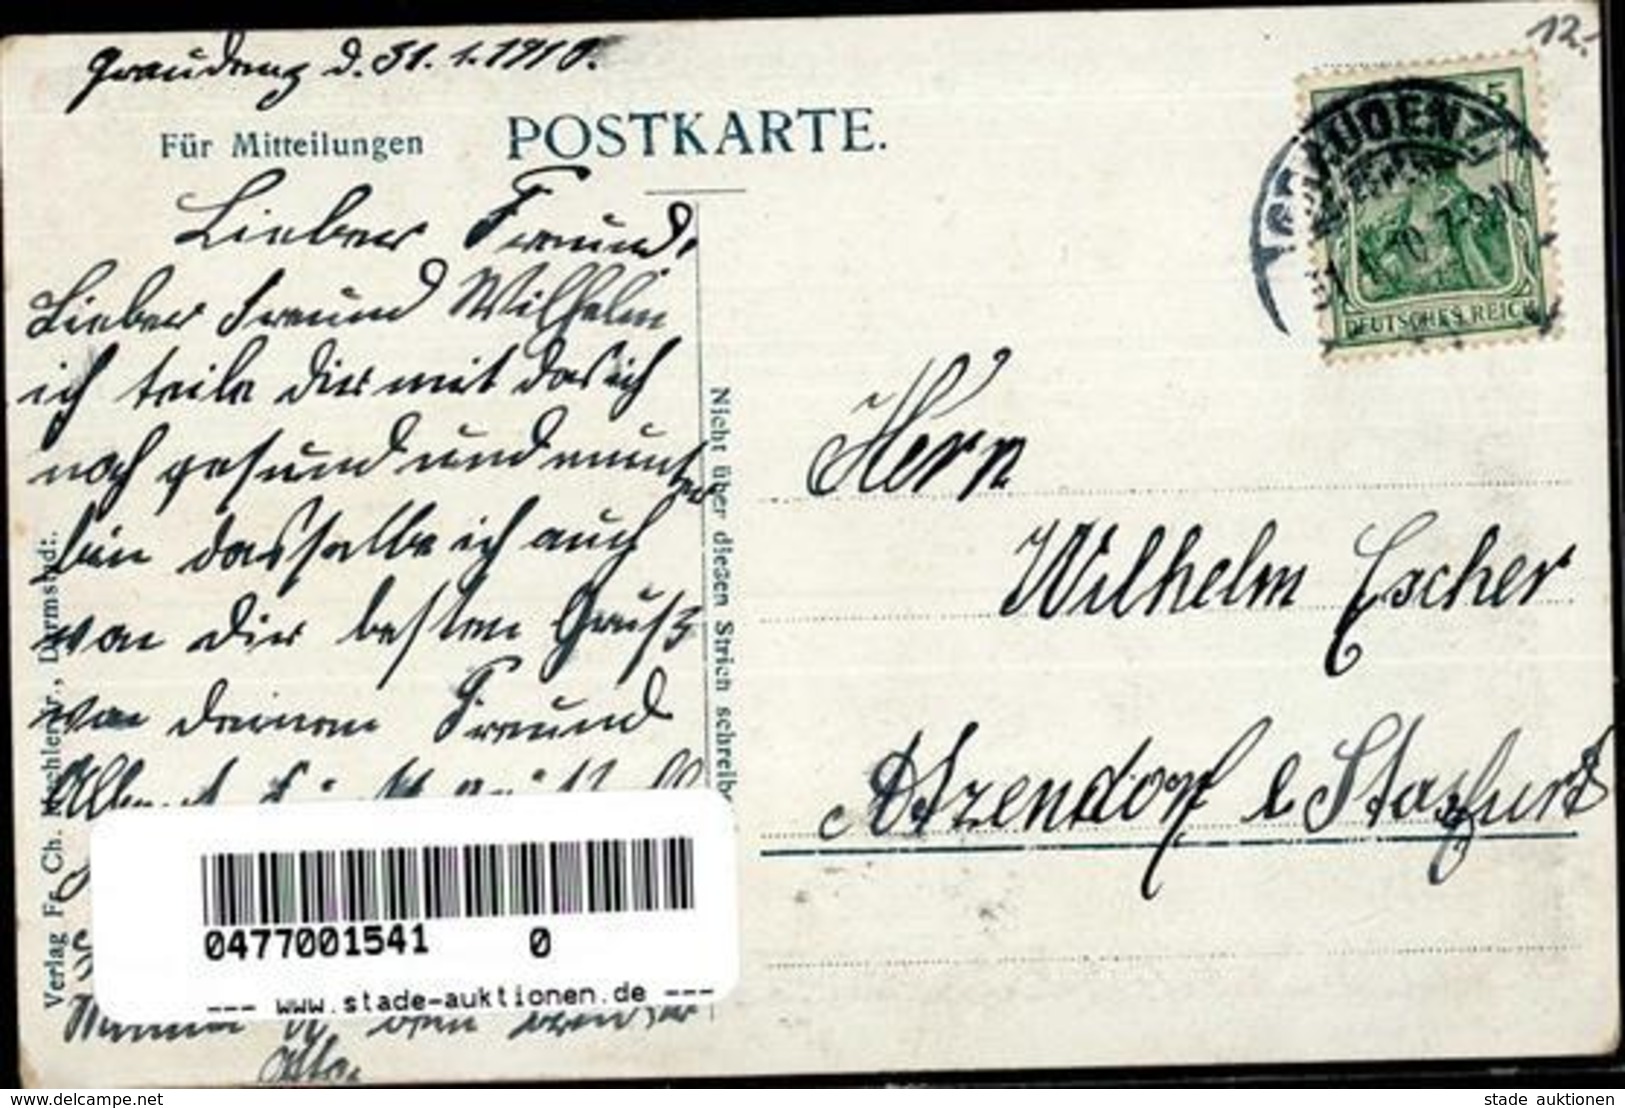 12.-
Graudenz d. 31. 1. 1910.
Für Mitteilungen
POSTKARTE.
5
GRAUDENZ
31. 1. 10. 7-8N
DEUTSCHES REICH
Lieber Freund.
Lieber Freund Wilhelm
ich teile dir mit das ich
noch gesund und munter
bin dasselbe ich auch
von dir besten Gruß
von deinem Freund
Herrn
Wilhelm Escher
Atzendorf b Stasfurt
Nicht über diesen Strich schreibe
Verlag Fr. Ch. Mechler jr., Darmstadt.
0477001541 0
--- www.stade-auktionen.de ---
www.delcampe.net
stade auktionen